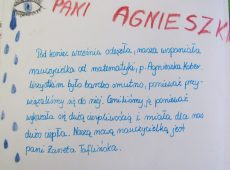 PANI AGNIESZK
Pod koniec września odeszła, nasza wspaniała
nauczycielka od matematyki, p. Agnieszka Kober.
Wszystkim było bardzo smutno, ponieważ przy-
wiązaliśmy się do niej. Ceniliśmy ją ponieważ
wykazała się dużą cierpliwością i miała dla nas
dużo ciepła. Naszą nową nauczycielką jest
pani Żaneta Taflińska.